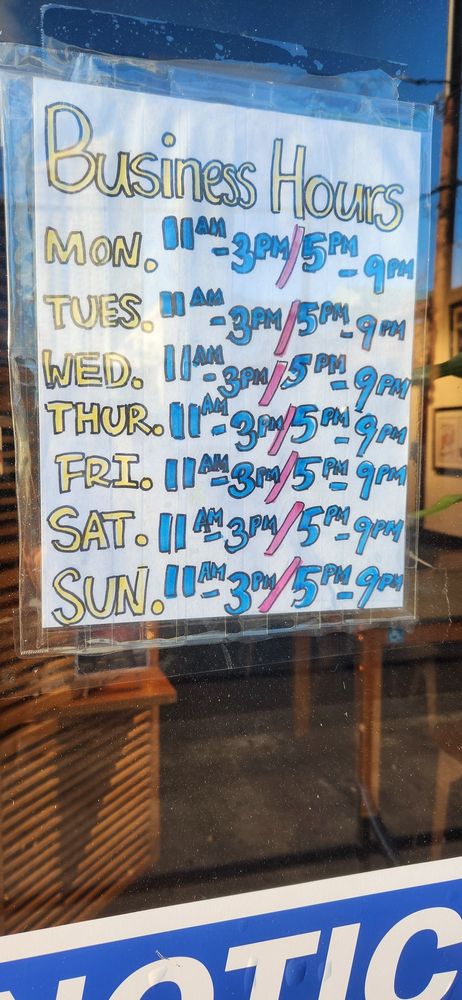 Business Hours
MON. 11AM-3PM/5PM-9PM
TUES. 11AM-3PM/5PM-9PM
WED. 11AM-3PM/5PM-9PM
THUR. 11AM-3PM/5PM-9PM
FRI. 11AM-3PM/5PM-9PM
SAT. 11AM-3PM/5PM-9PM
SUN. 11AM-3PM/5PM-9PM
NOTIC